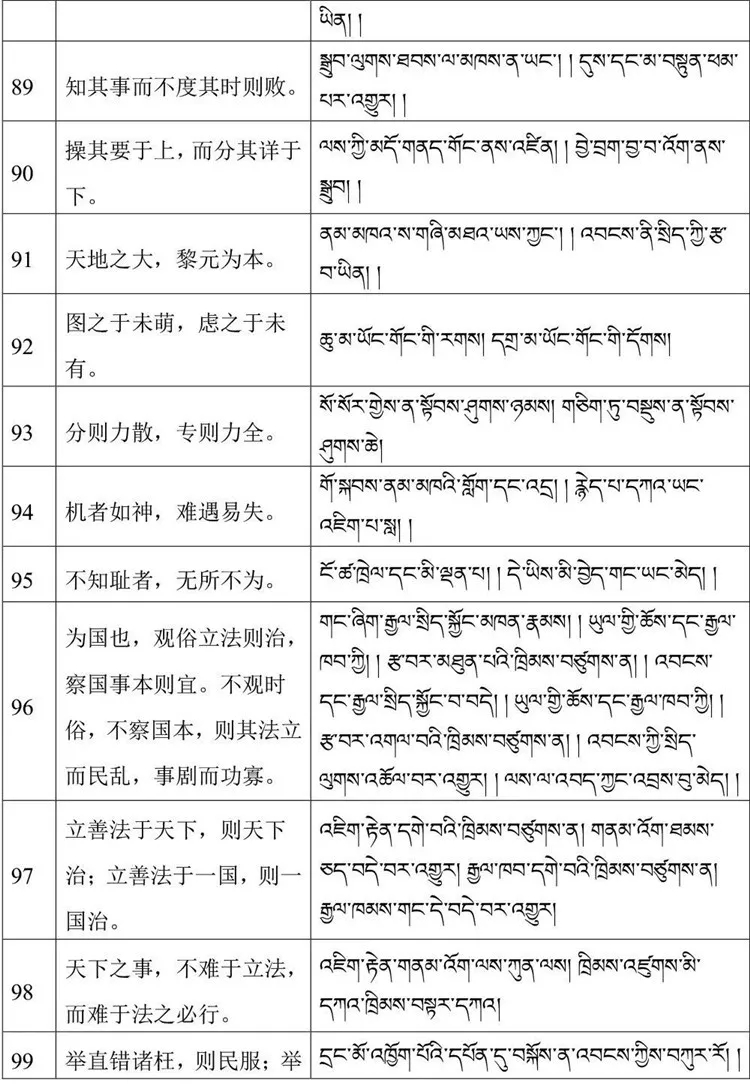 ཡིན། །
89 知其事而不度其时则败。 སྒྲུབ་ལུགས་ཐབས་ལ་མཁས་ན་ཡང་། །དུས་དང་མ་བསྟུན་ཕམ་
པར་འགྱུར། །
90 操其要于上，而分其详于 ལས་ཀྱི་མདོ་གནད་གོང་ནས་འཛིན། །བྱེ་བྲག་བྱ་བ་འོག་ནས་
下。 སྒྲུབ། །
91 天地之大，黎元为本。 ནམ་མཁའ་ས་གཞི་མཐའ་ཡས་ཀྱང་། །འབངས་ནི་སྲིད་ཀྱི་རྩ་
བ་ཡིན། །
92 图之于未萌，虑之于未 ཆུ་མ་ཡོང་གོང་གི་རགས། དགྲ་མ་ཡོང་གོང་གི་དོགས།
有。
93 分则力散，专则力全。 སོ་སོར་གྱེས་ན་སྟོབས་ཤུགས་ཉམས། གཅིག་ཏུ་བསྡུས་ན་སྟོབས་
ཤུགས་ཆེ།
94 机者如神，难遇易失。 གོ་སྐབས་ནམ་མཁའི་གློག་དང་འདྲ། །རྙེད་པ་དཀའ་ཡང་
འཇིག་པ་སླ། །
95 不知耻者，无所不为。 ངོ་ཚ་ཁྲེལ་དང་མི་ལྡན་པ། །དེ་ཡིས་མི་བྱེད་གང་ཡང་མེད། །
96 为国也，观俗立法则治， གང་ཞིག་རྒྱལ་སྲིད་སྐྱོང་མཁན་རྣམས། །ཡུལ་གྱི་ཆོས་དང་རྒྱལ་
察国事本则宜。不观时 ཁབ་ཀྱི། །རྩ་བར་མཐུན་པའི་ཁྲིམས་བཙུགས་ན། །འབངས་
俗，不察国本，则其法立 དང་རྒྱལ་སྲིད་སྐྱོང་བ་བདེ། །ཡུལ་གྱི་ཆོས་དང་རྒྱལ་ཁབ་ཀྱི། །
而民乱，事剧而功寡。 རྩ་བར་འགལ་བའི་ཁྲིམས་བཙུགས་ན། །འབངས་ཀྱི་སྲིད་
ལུགས་འཚོལ་བར་འགྱུར། །ལས་ལ་འབད་ཀྱང་འབྲས་བུ་མེད། །
97 立善法于天下，则天下 འཇིག་རྟེན་དགེ་བའི་ཁྲིམས་བཙུགས་ན། གནམ་འོག་ཐམས་
治；立善法于一国，则一 ཅད་བདེ་བར་འགྱུར། རྒྱལ་ཁབ་དགེ་བའི་ཁྲིམས་བཙུགས་ན།
国治。 རྒྱལ་ཁམས་གང་དེ་བདེ་བར་འགྱུར།
98 天下之事，不难于立法， འཇིག་རྟེན་གནམ་འོག་ལས་ཀུན་ལས། ཁྲིམས་འཛུགས་མི་
而难于法之必行。 དཀའ་ཁྲིམས་བསྟར་དཀའ།
99 举直错诸枉，则民服；举 དྲང་མོ་འཁྱོག་པོའི་དཔོན་དུ་བསྐོས་ན་འབངས་ཀྱིས་བཀུར་རོ། །